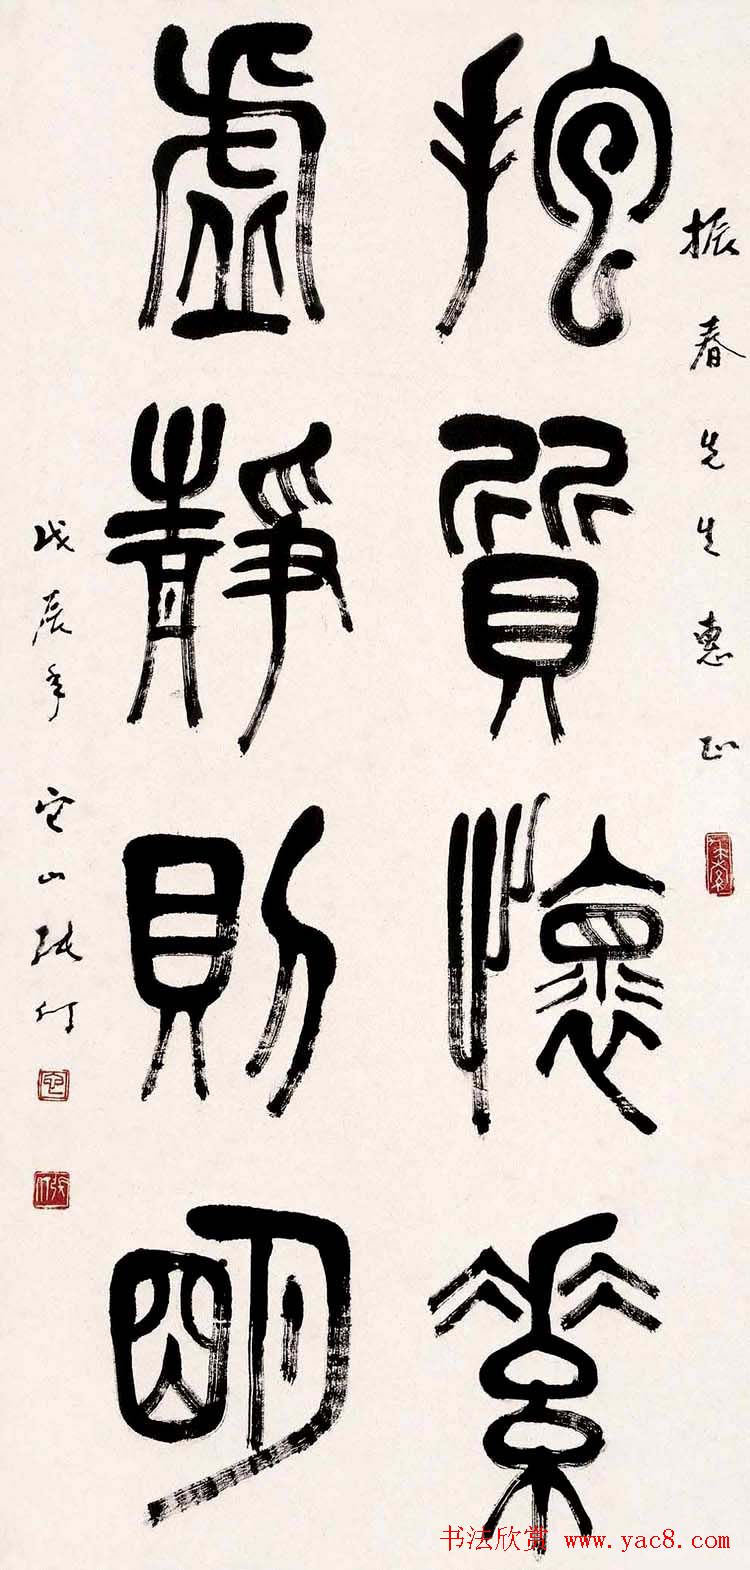 振春先生惠正
抱質懷素
虛靜則明
戊辰年 它山張仃
它
張仃
书法欣赏 www.yac8.com